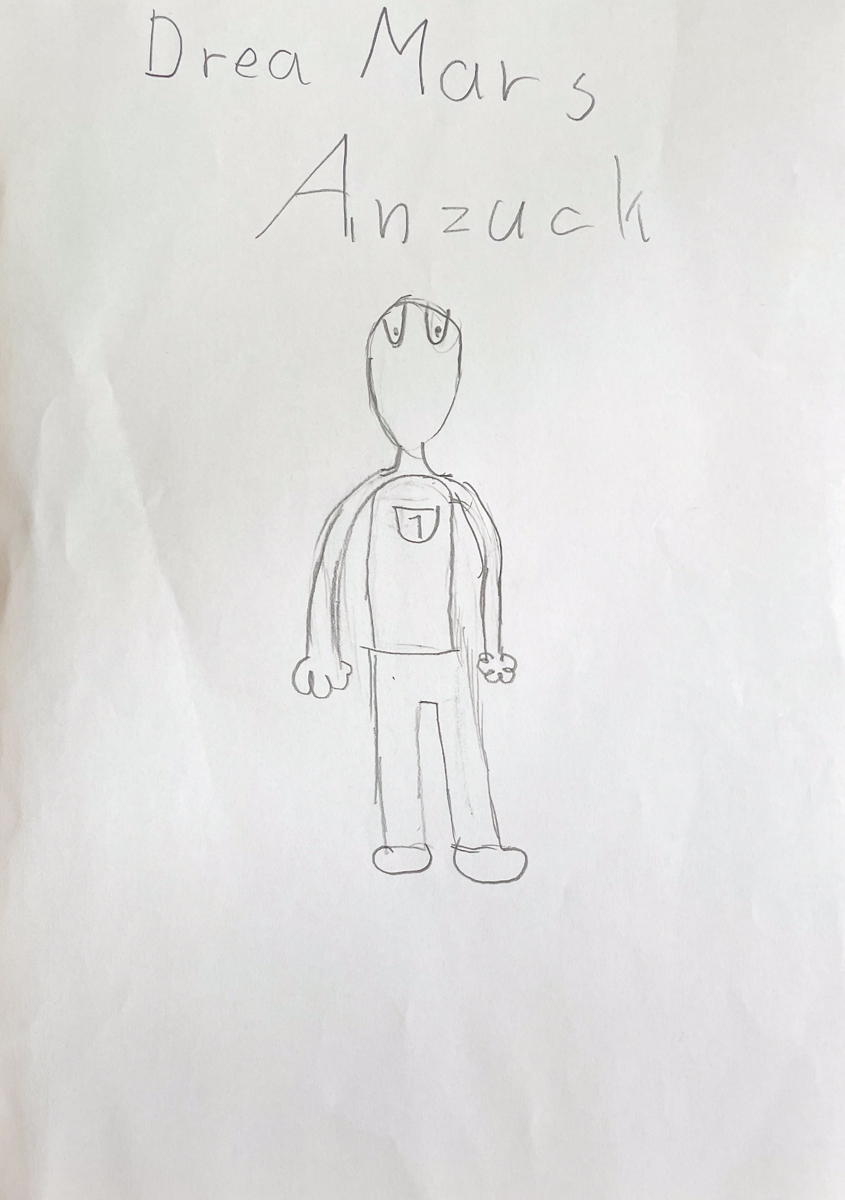 Drea Mars
Anzuck
1